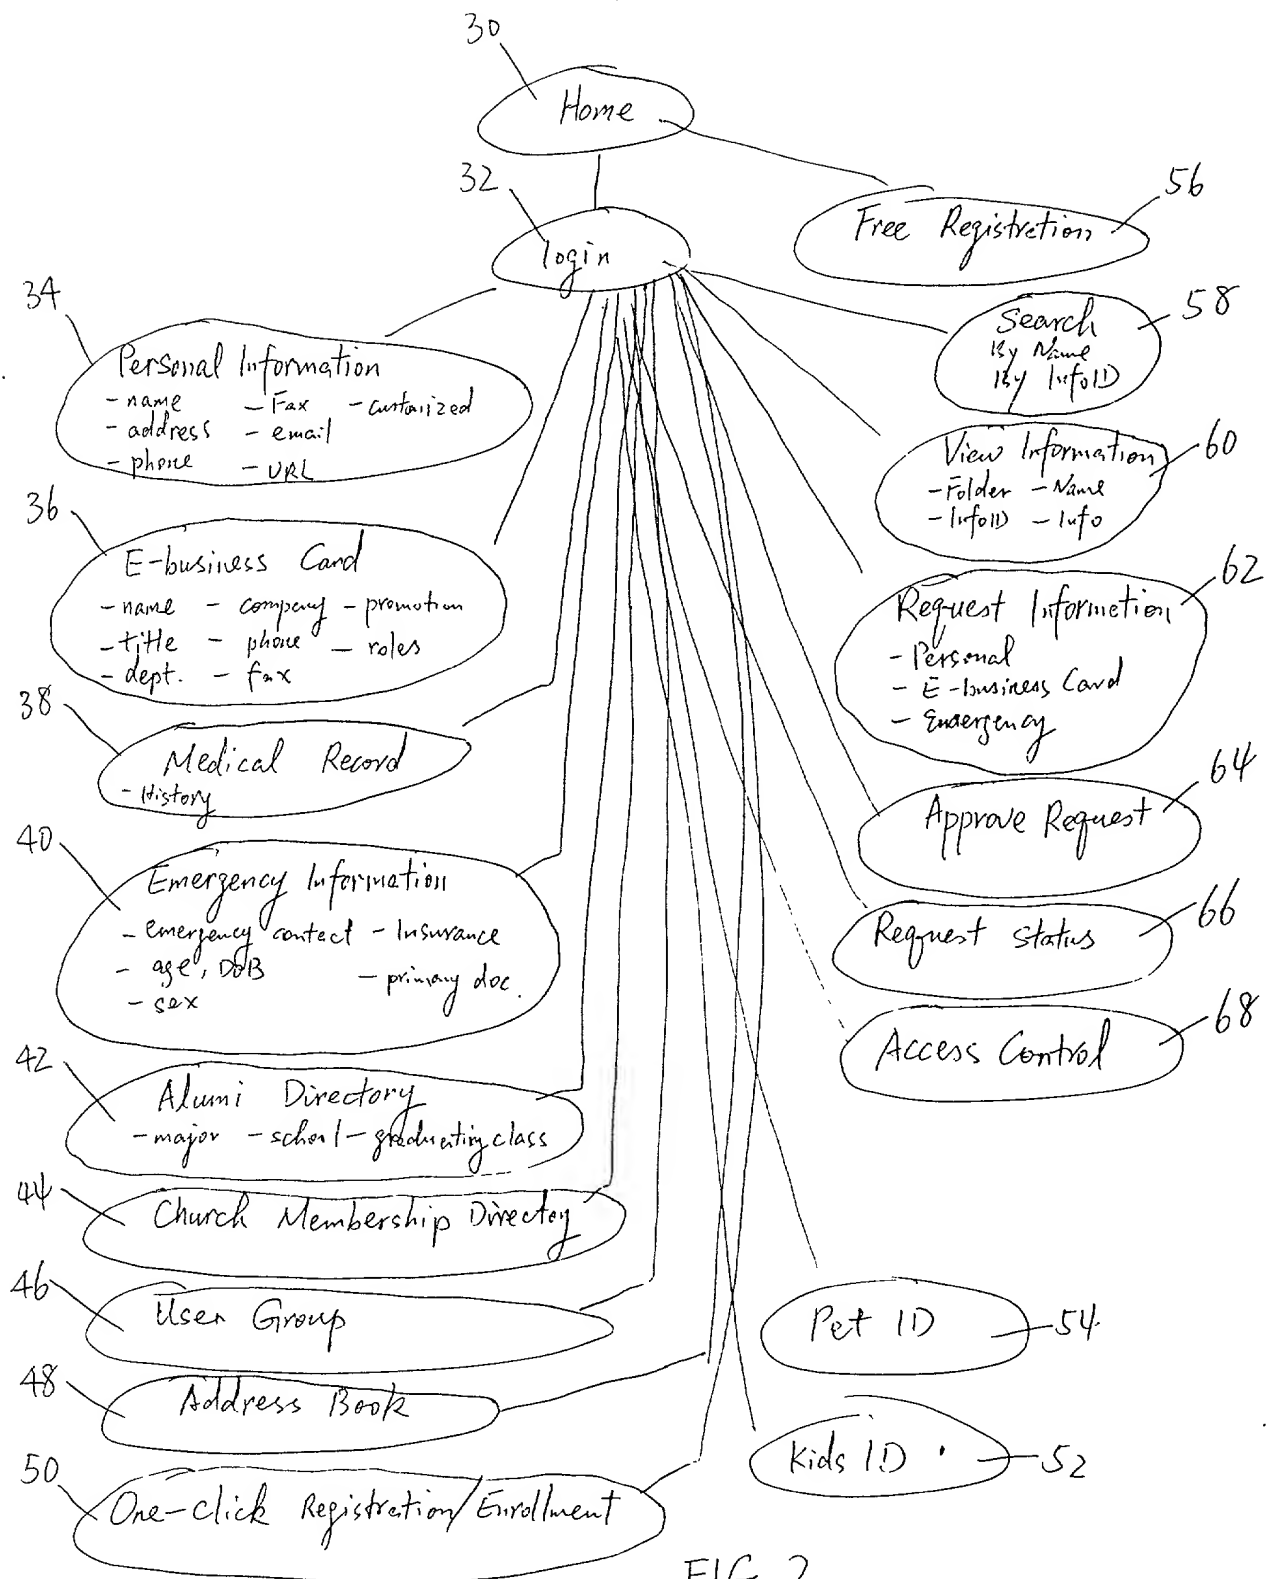 30
Home
32
login
56
Free Registretion
34
Personal Information
- name - Fax - customized
- address - email
- phone - URL
58
Search
By Name
By InfoID
60
View Information
- Folder - Name
- InfoID - Info
36
E-business Card
- name - company - promotion
- title - phone - roles
- dept. - fax
62
Request Information
- Personal
- E-business Card
- Emergency
38
Medical Record
- History
64
Approve Request
40
Emergency Information
- emergency contact - Insurance
- age, DoB - primary doc.
- sex
66
Request Status
68
Access Control
42
Alumi Directory
- major - school - graduating class
44
Church Membership Directoy
46
User Group
54
Pet ID
48
Address Book
52
Kids ID
50
One-click Registration/Enrollment
FIG 2